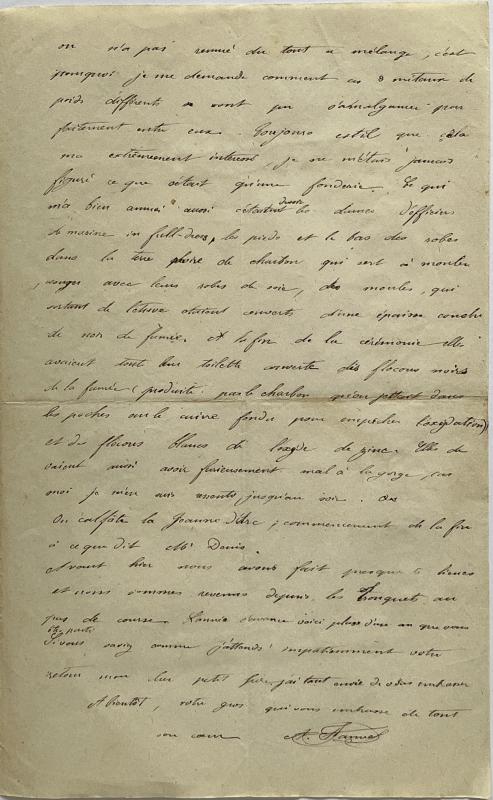 on n'a pas remué du tout ce mélange, c'est
pourquoi je me demande comment ces 3 métaux de
poids différents se sont pu s'amalgamer par
faitement entre eux. Toujours est-il que cela
ma extrêmement interessé, je ne métais jamais
figuré ce que c'était qu'une fonderie. Ce qui
m'a bien amusé aussi c'étaient les dames d'officiers
de marine in full-dress, les pieds et le bas des robes
dans la terre noire de charbon qui sert à mouler
avec leurs robes de soie, des moules, qui
sortant de l'étuve étaient couverts d'une épaisse couche
de noir de fumée. A la fin de la cérémonie elles
avaient tout leur toilette couverte des flocons noirs
de la fumée (produite par le charbon qu'on jettait dans
les poches sur le cuivre fondu pour empêcher l'oxydation)
et des flocons blancs de l'oxyde de zinc. Elles de
vaient aussi avoir furieusement mal à la gorge, car
moi je m'en suis ressenti jusqu'au soir.
On calfate la Jeanne d'Arc, commencement de la fin
à ce que dit Mr Denis.
Avant hier nous avons fait presque 6 lieues
et nous sommes revenus depuis les au
pas de course. L'année s'avance voici plus d'un an que vous
êtes parti
Si vous saviez comme j'attends impatiemment votre
retour mon cher petit père, j'ai tant envie de vous embrasser
A bientôt, votre gros qui vous embrasse de tout
son cœur A.